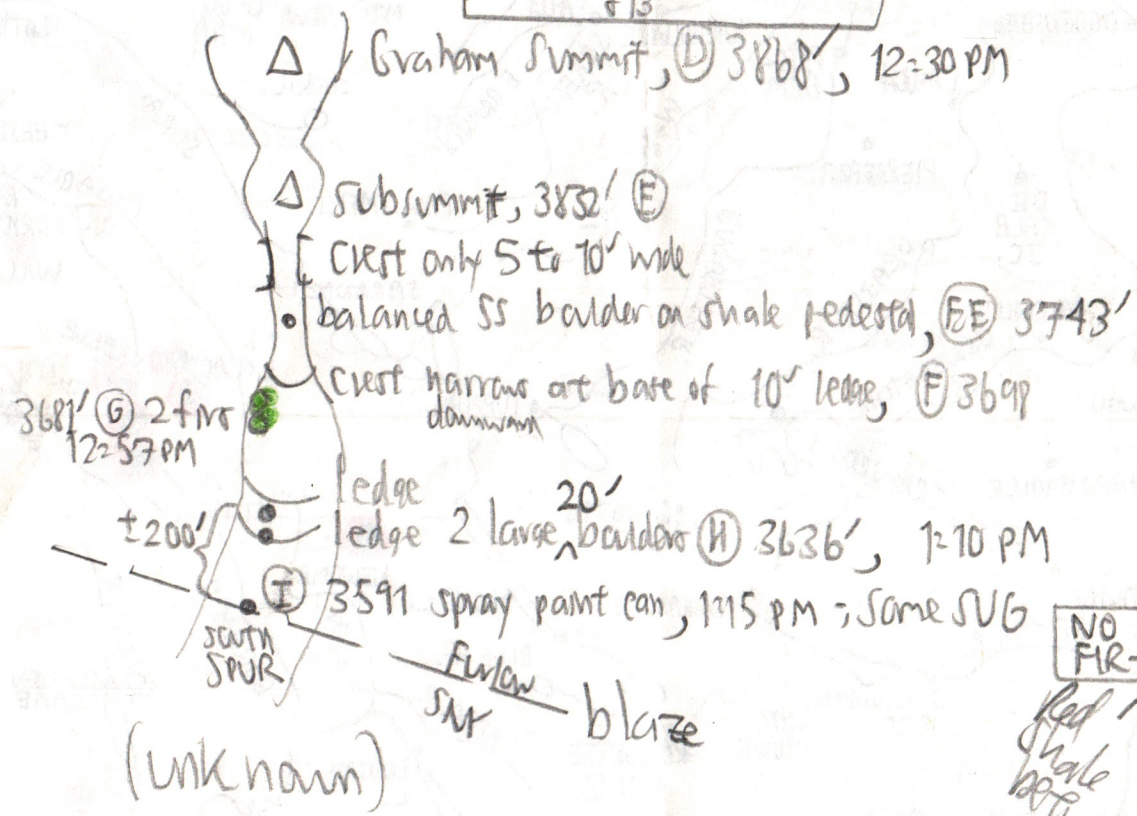 Graham Summit, D 3868', 12:30 PM
Subsummit, 3832' E
Crest only 5 to 10' wide
balanced SS boulder on shale pedestal, EE 3743'
Crest narrows at base of 10' ledge, F 3698
downward
3681' G 2 firs
12:57 PM
ledge
20'
±200' ledge 2 large ^ boulders H 3636', 1:10 PM
I 3591 spray paint can, 1:15 PM ; some SUG
SOUTH
SPUR
Furlow
blaze
(unknown)
NO
FIR-
Red
shale